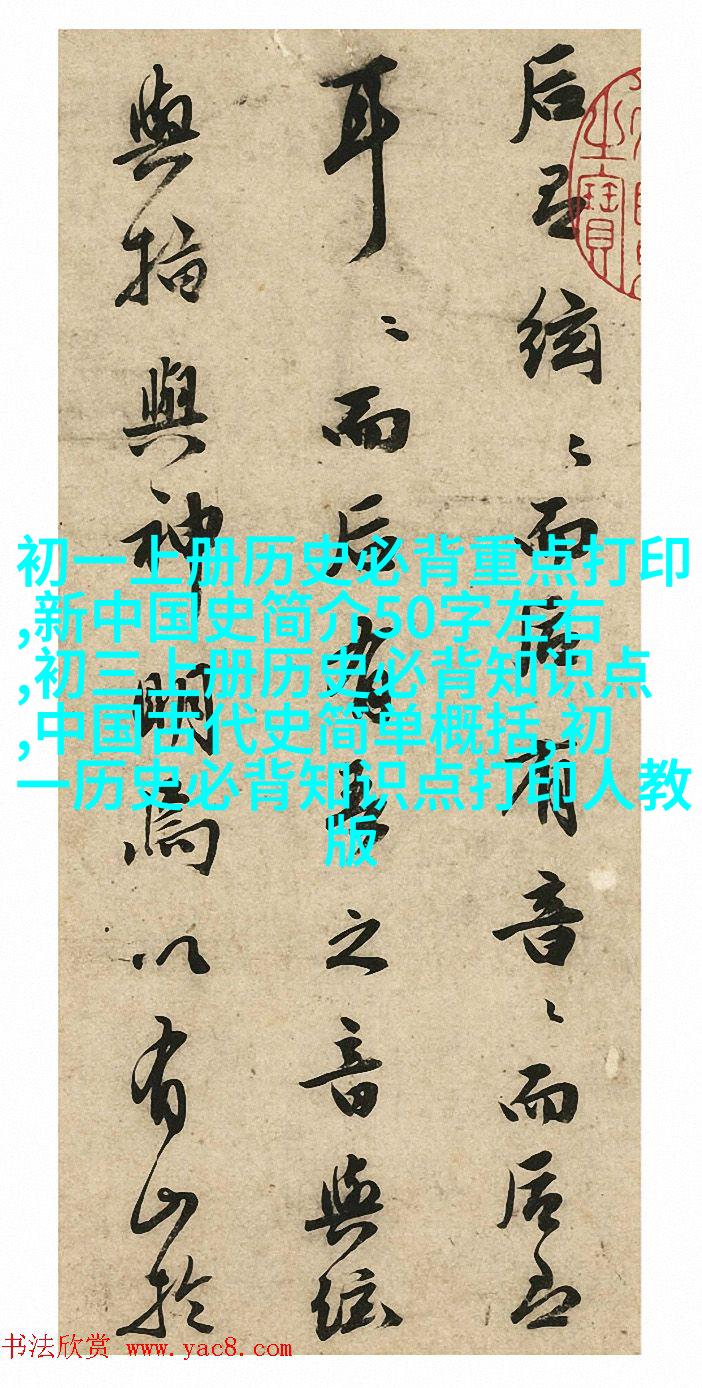 后絃〻而后有音〻而后
耳〻而后有吾之音與絃
與指與神明焉以有山於
之寶
初一上册历史必背重点打印
,新中国史简介50字左右
,初三上册历史必背知识点
,中国古代史简单概括,初
一历史必背知识点打印人教
版
书法欣赏 www.yac8.com